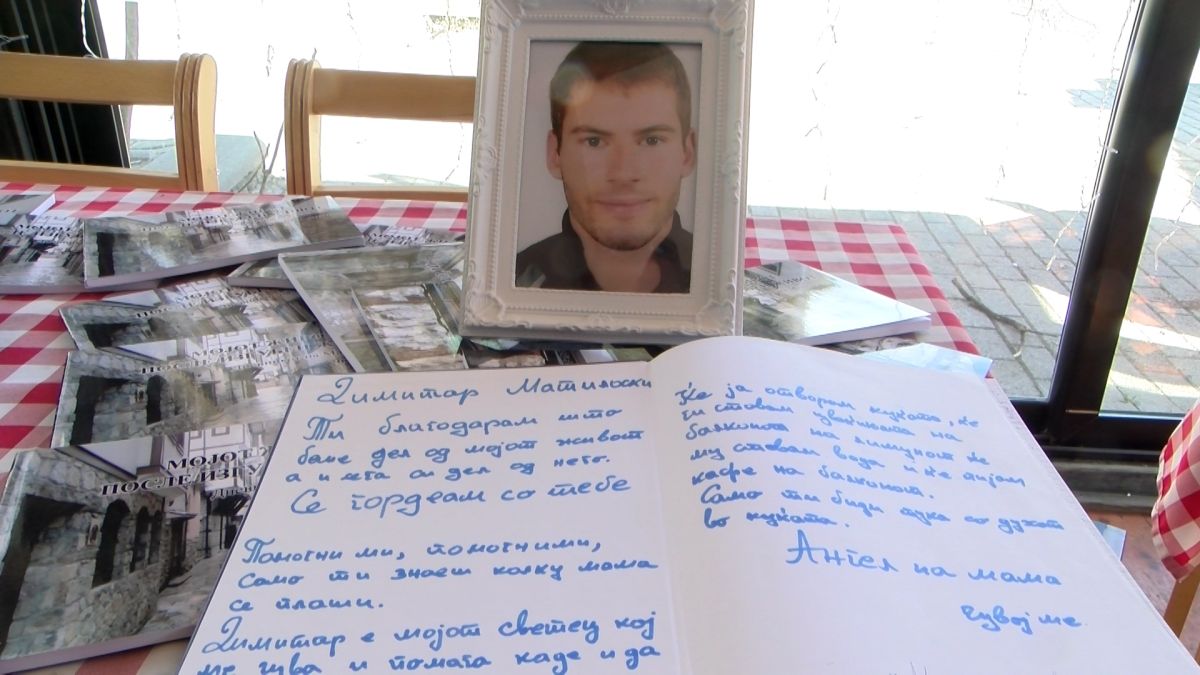 МОЈОТ
ПОСЛЕ ИЗГУ
МОЈОТ
ПОСЛЕ ИЗГУ
Димитар Матиљоски
Ти благодарам што
беше дел од мојот живот
а и сега си дел од него.
Се гордеам со тебе
Помогни ми, помогними,
само ти знаеш колку мама
се плаши.
Димитар е мојот светец кој
ме чува и помага каде и да
Ќе ја отворам куќата, ќе
ти ставам цвеќињата на
балконот на лимунот ќе
му ставам вода и ќе пијам
кафе на балконот.
Само ти биди тука со духот
во куќата.
Ангел на мама
чувај ме